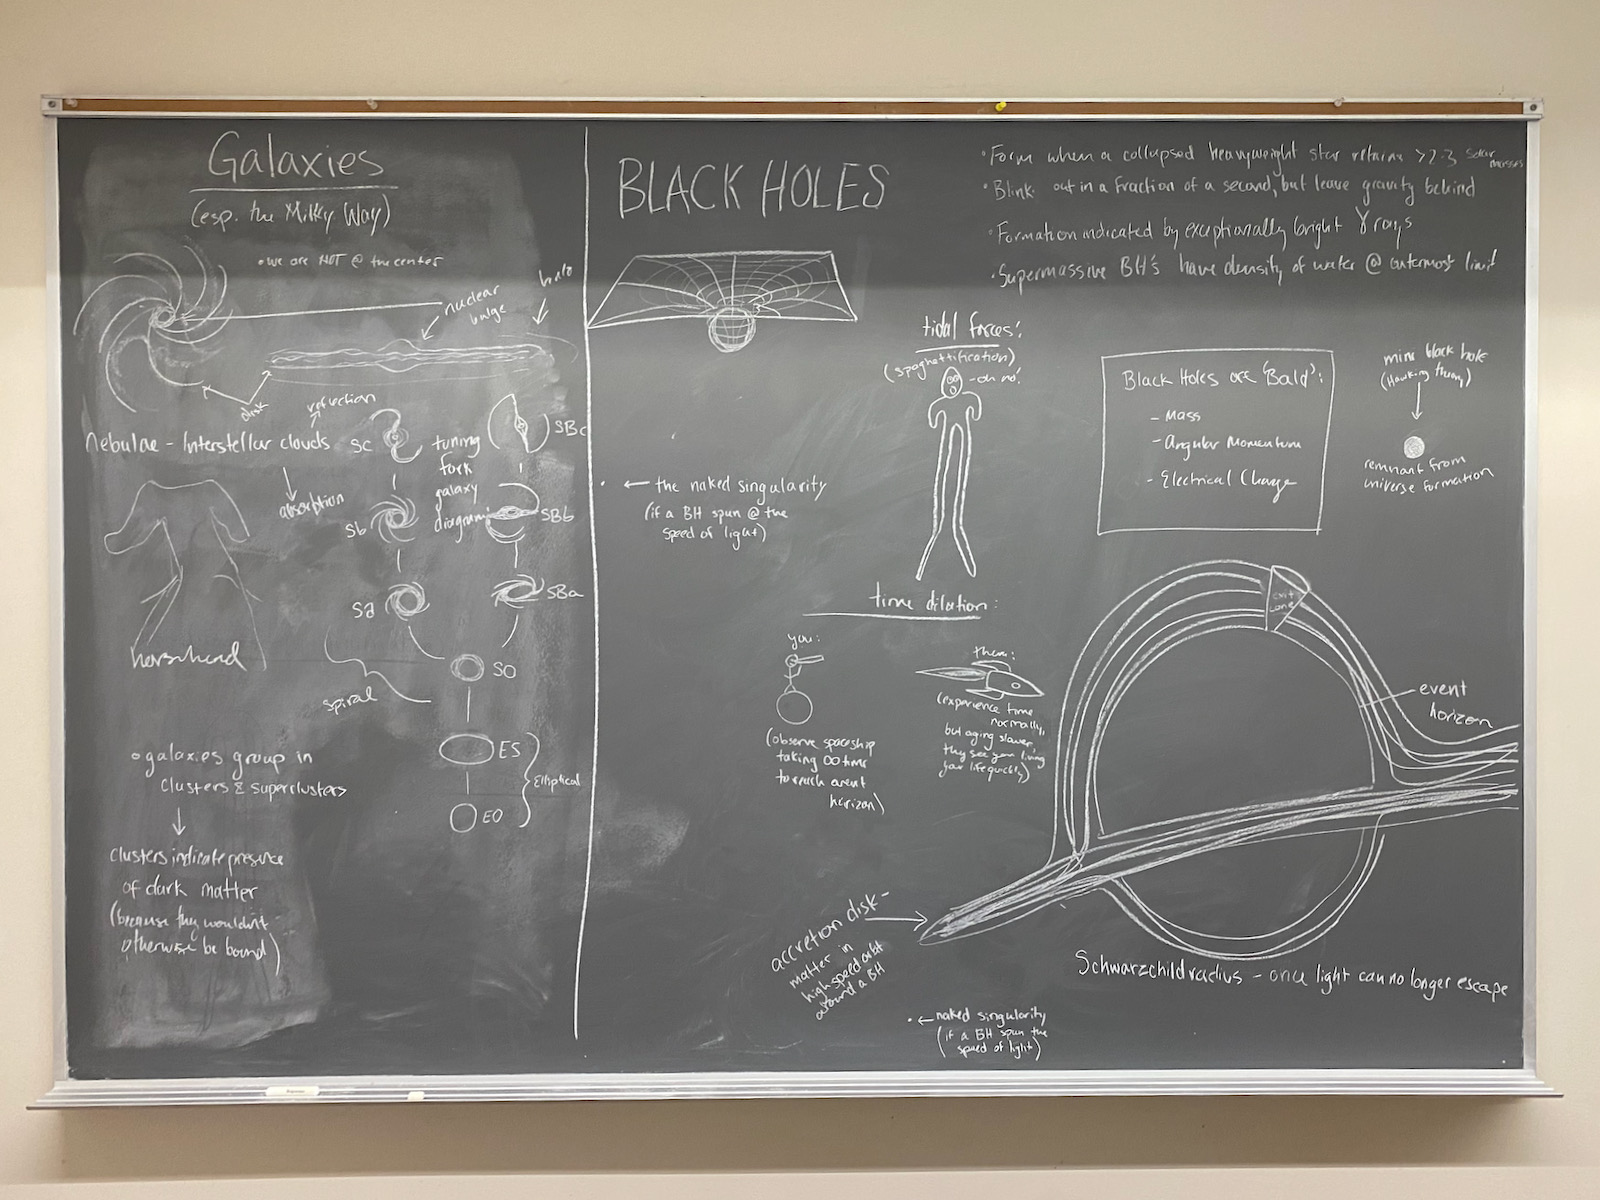 Galaxies
(esp. the Milky Way)
• we are NOT @ the center
halo
nuclear
bulge
disk
refraction
nebulae - Interstellar clouds
absorption
horsehead
Sc
SBc
tuning
fork
galaxy
diagram:
Sb
SBb
Sa
SBa
SO
spiral
ES
Elliptical
EO
• galaxies group in
clusters & superclusters
clusters indicate presence
of dark matter
(because they wouldn't
otherwise be bound)
BLACK HOLES
• Form when a collapsed heavyweight star retains >2-3 solar
masses
• Blink out in a fraction of a second, but leave gravity behind
• Formation indicated by exceptionally bright γ rays
• Supermassive BH's have density of water @ outermost limit
tidal forces:
(spaghettification)
- oh no!
Black Holes are 'Bald':
- Mass
- Angular Momentum
- Electrical Charge
mini black hole
(Hawking theory)
remnant from
universe formation
• ← the naked singularity
(if a BH spun @ the
speed of light)
time dilation:
you:
(observe spaceship
taking ∞ time
to reach event
horizon)
them:
(experience time
normally,
but aging slower,
they see you living
your life quickly)
Exit
Lane
event
horizon
accretion disk -
matter in
high speed orbit
around a BH
Schwarzchild radius - once light can no longer escape
• ← naked singularity
(if a BH spun the
speed of light)